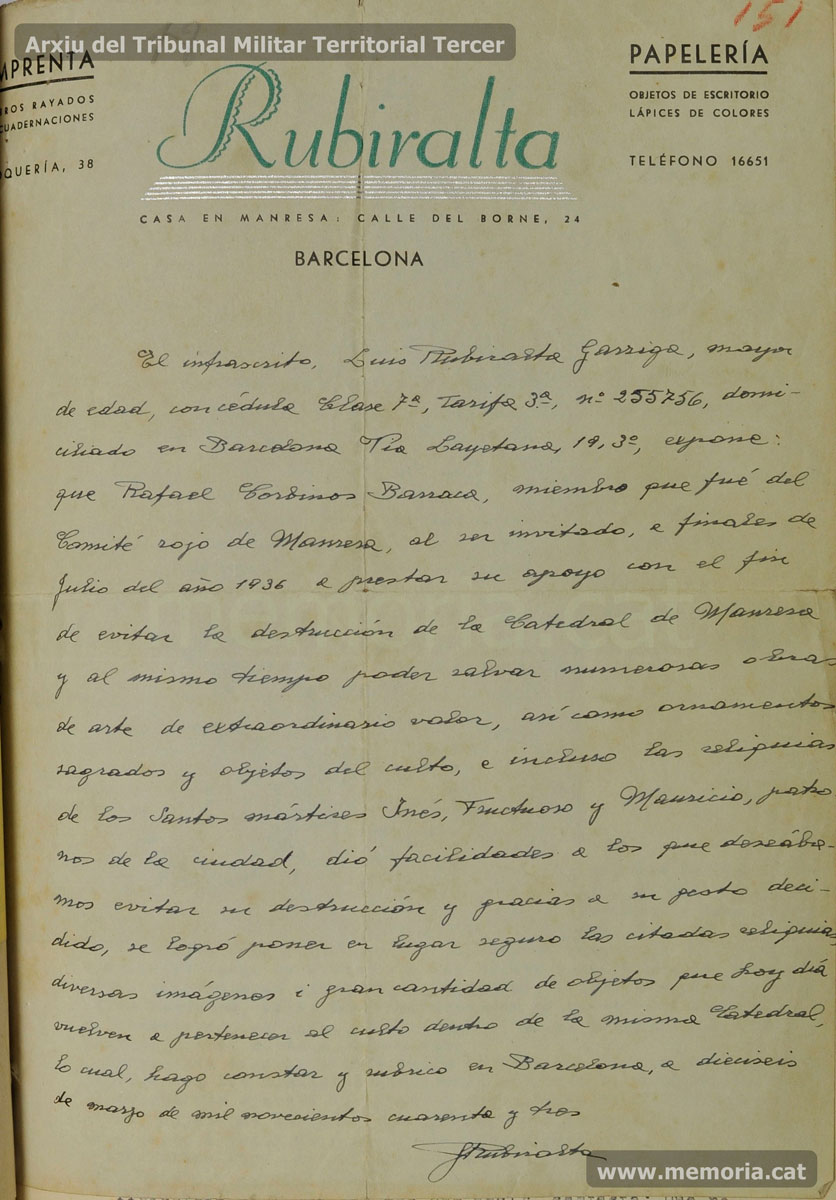 Arxiu del Tribunal Militar Territorial Tercer
151
MPRENTA
ROS RAYADOS
CUADERNACIONES
QUERÍA, 38
Rubiralta
PAPELERÍA
OBJETOS DE ESCRITORIO
LÁPICES DE COLORES
TELÉFONO 16651
CASA EN MANRESA: CALLE DEL BORNE, 24
BARCELONA
El infrascrito, Luis Rubiralta Garriga, mayor
de edad, con cédula Clase 7ª, Tarifa 3ª, nº 255756, domi-
ciliado en Barcelona Via Layetana, 19, 3º, expone:
que Rafael Corbinos Barraca, miembro que fué del
Comité rojo de Manresa, al ser invitado, a finales de
Julio del año 1936 a prestar su apoyo con el fin
de evitar la destrucción de la Catedral de Manresa
y al mismo tiempo poder salvar numerosas obras
de arte de extraordinario valor, así como ornamentos
sagrados y objetos del culto, e incluso las reliquias
de los Santos mártires Inés, Fructuoso y Mauricio, patro
nos de la ciudad, dió facilidades a los que deseába-
mos evitar su destrucción y gracias a su gesto deci-
dido, se logró poner en lugar seguro las citadas reliquias,
diversas imágenes i gran cantidad de objetos que hoy día
vuelven a pertenecer al culto dentro de la misma Catedral,
lo cual, hago constar y rubrico en Barcelona, a dieciseis
de marzo de mil novecientos cuarenta y tres
LRubiralta
www.memoria.cat